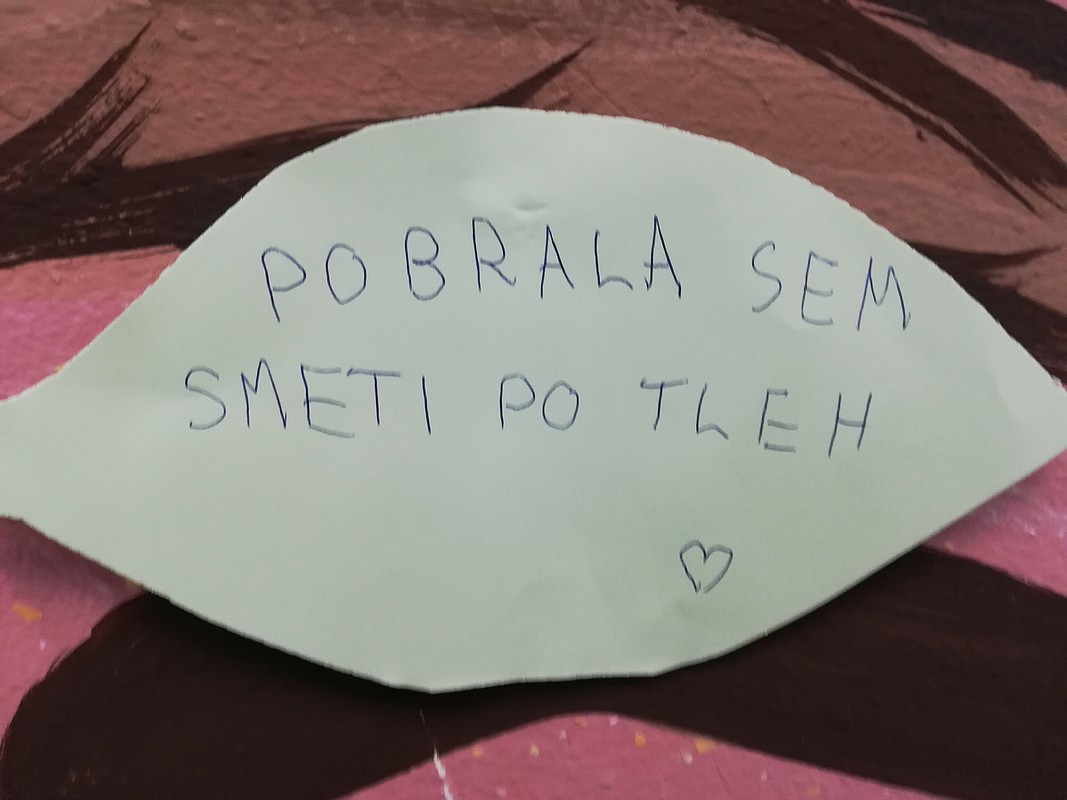 POBRALA SEM
SMETI PO TLEH
♡